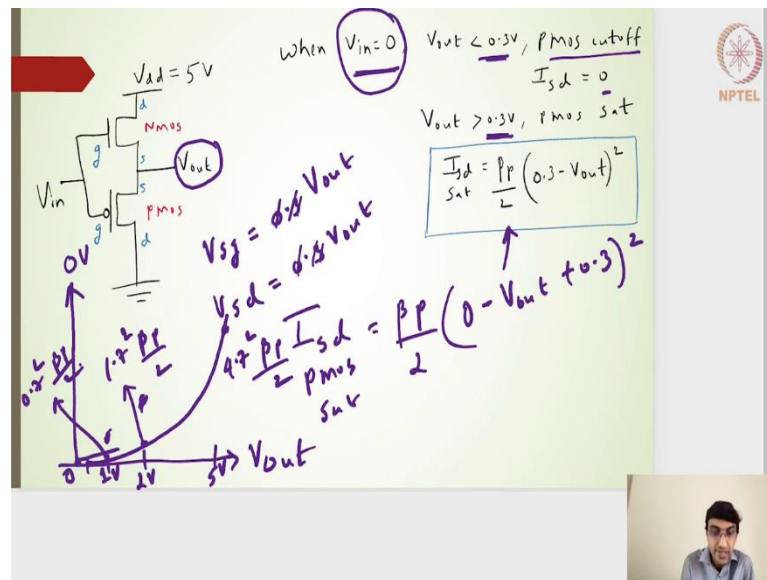 when Vin=0, Vout < 0.3V, pmos cutoff
Isd = 0
Vout > 0.3V, pmos sat
Isd sat = βp/2 (0.3 - Vout)²
NPTEL
Vdd = 5V
d
Nmos
g
s
Vout
Vin
s
pmos
g
d
Vsg = Vout
Vsd = Vout
Isd pmos sat = βp/2 (0 - Vout + 0.3)²
0V
0.7² βp/2
1.7² βp/2
4.7² βp/2
0 1V 2V 5V Vout